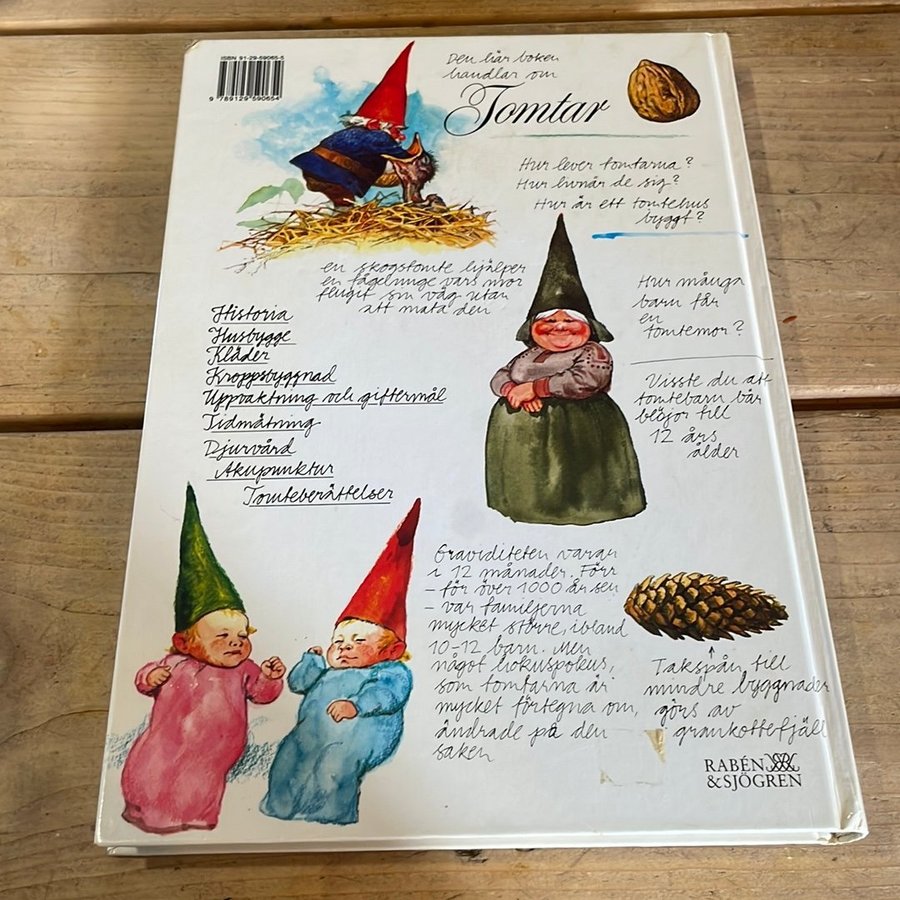 ISBN 91-29-59065-5
9 789129 590654
Den här boken
handlar om
Tomtar
Hur lever tomtarna?
Hur livnär de sig?
Hur är ett tomtehus
byggt?
en skogstomte hjälper
en fågelunge vars mor
flugit sin väg utan
att mata den
Historia
Husbygge
Kläder
Kroppsbyggnad
Uppvaktning och giftermål
Tidmätning
Djurvård
Akupunktur
Tomteberättelser
Hur många
barn får
en
tomtemor?
Visste du att
tomtebarn bär
blöjor till
12 års
ålder
Graviditeten varar
i 12 månader. Förr
- för över 1000 år sen
- var familjerna
mycket större, ibland
10-12 barn. Men
något hokuspokus,
som tomtarna är
mycket förtegna om,
ändrade på den
saken
Takspån till
mindre byggnader
görs av
grankottefjäll
RABÉN
&SJÖGREN